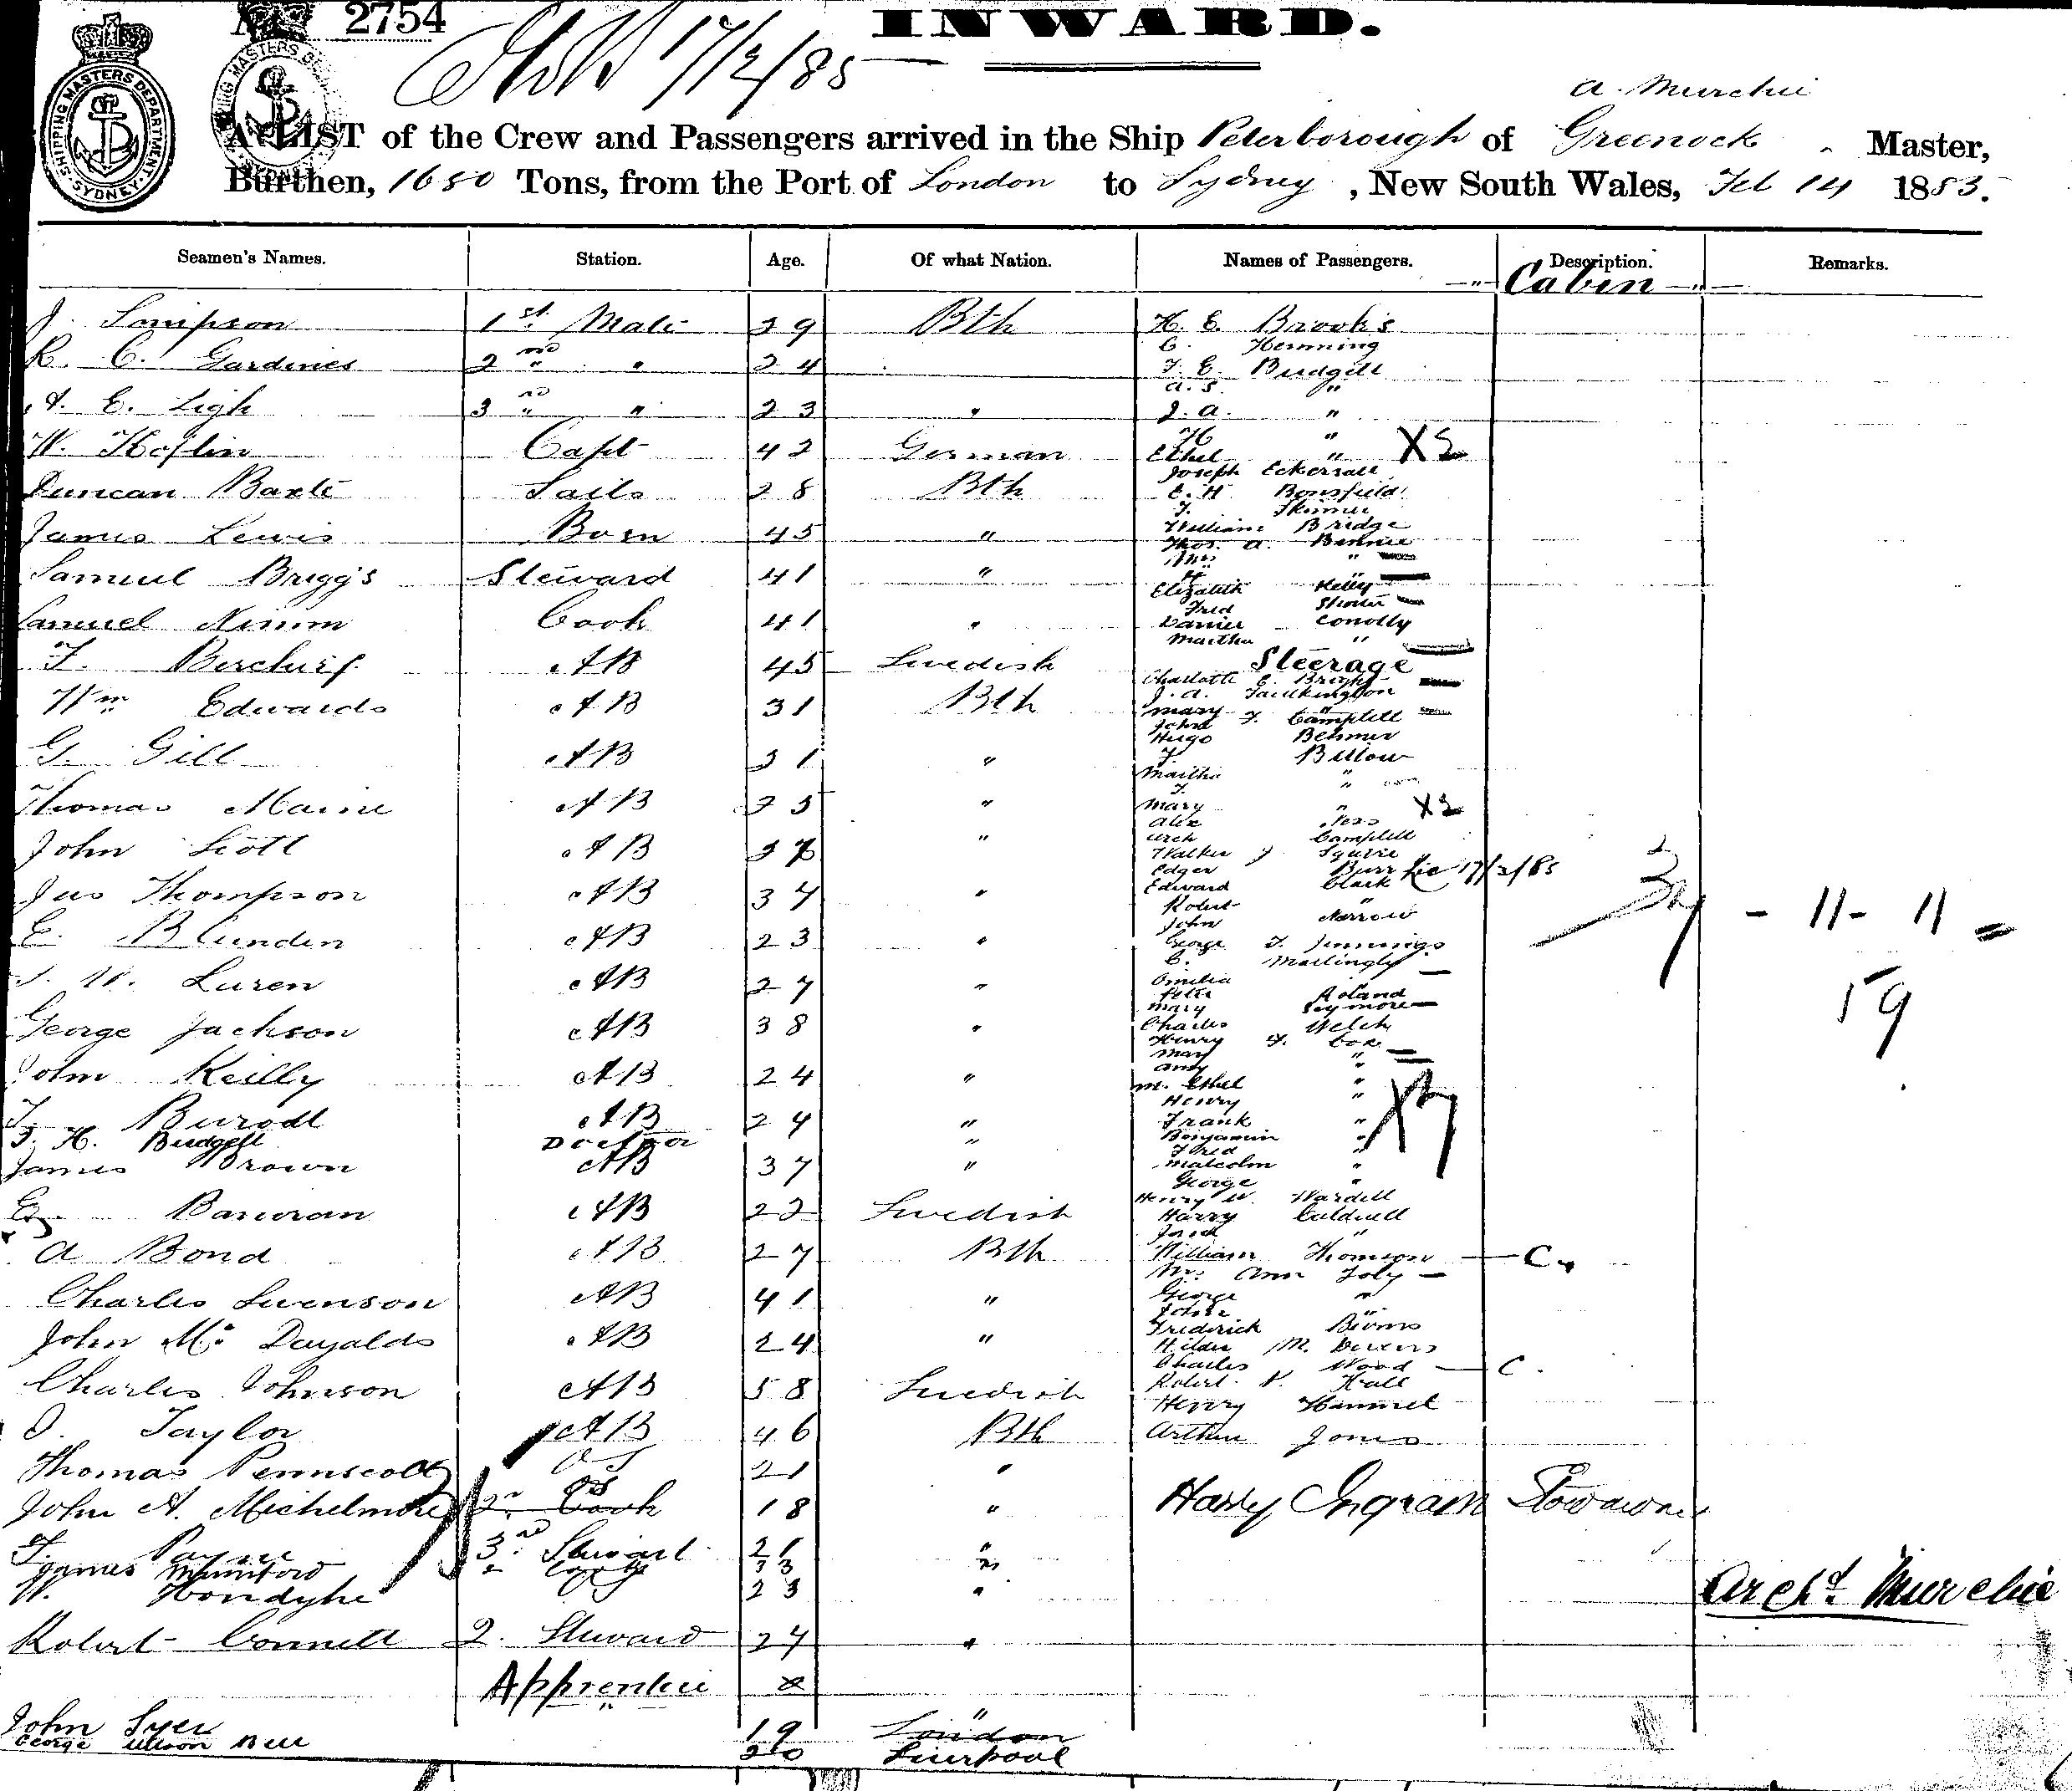 2754
INWARD.
17/2/85
A. Murchie
A LIST of the Crew and Passengers arrived in the Ship Peterborough of Greenock Master,
Burthen, 1680 Tons, from the Port of London to Sydney, New South Wales, Feb 14 1885.
SHIPPING MASTERS DEPARTMENT SYDNEY
Seamen's Names. Station. Age. Of what Nation. Names of Passengers. Description. Remarks.
" Cabin "
J. Simpson 1st Mate 29 Bth
R. C. Gardiner 2nd " 24
A. E. Ligh 3rd " 23 "
W. Koflin Capt 42 German
Duncan Baxte Sails 28 Bth
James Lewis Bosn 45 "
Samuel Briggs Steward 41 "
Samuel Nimm Cook 41 "
F. AB 45 Swedish
Wm Edwards AB 31 Bth
G. Gill AB 31 "
Thomas AB 25 "
John Scott AB "
Jas Thompson AB 37 "
E. Blunden AB 23 "
J. W. Luren AB 27 "
George Jackson AB 38 "
John Reilly AB 24 "
AB 24 "
F. H. Budgett Doctor "
James Brown AB 37 "
AB 22 Swedish
A Bond AB 27 Bth
Charles Swenson AB 41 "
John Mc AB 24 "
Charles Johnson AB 58 Swedish
O. Taylor AB 46 Bth
Thomas Pennscott OS 21 "
John A. Michelmore 2nd Cook OS 18 "
F. Payne 3rd Steward 21 "
James Mumford " Cook 33 "
W. Hondyhe OS 23 "
Robert Connell 2. Steward 24 "
Apprentice
" "
John Syer 19 London
George Wilson Bell 20 Liverpool
H. E. Brooks
C. Hemming
F. E. Budgett
A. S. "
J. A. "
H "
Ethel " X2
Joseph Eckersall
E. H. Bousfield
F. Skinner
William Bridge
Thos. A. Bennie
Mrs "
"
Elizabeth Kelly
Fred
Daniel Conolly
Martha "
Steerage
Charlotte E. Bright
J. A. Faulkington
Mary "
John F. Campbell
Hugo Behmer
F. Bulow
Martha "
F. "
Mary " X2
Alex Ross
Arch Campbell
Walker J Squire
Edgar Burr 17/2/85
Edward Clark
Robert "
John Narrow
George F. Jennings
C. Mattingly
Emilia
Peter Roland
Mary Seymore
Charles Welch
Henry F. Cox
Mary "
Amy "
M. Ethel "
Henry "
Frank "
Benjamin "
Fred "
Malcolm "
George "
Henry W. Wardell
Harry Caldwell
"
William Thomson C.
Mrs Ann Foly
George "
"
Frederick Binns
Hilda M.
Charles Wood C.
Robert Hall
Henry Hammet
Arthur Jones
Harry Ingram Stowaway
- 11 - 11 =
59
Archd Murchie